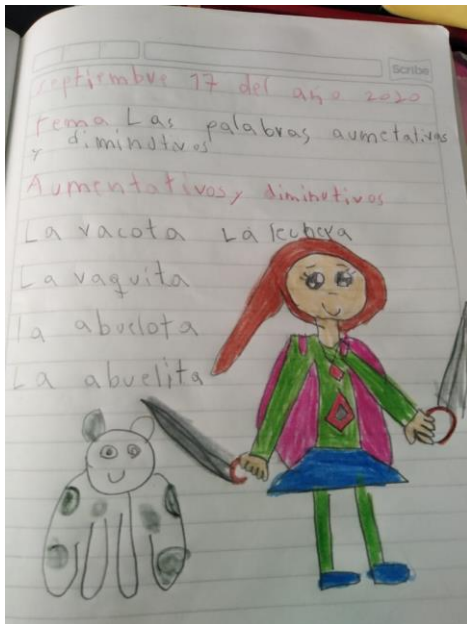 Scribe
septiembre 17 del año 2020
tema Las palabras aumetativas
y diminutivos
Aumentativos y diminutivos
La vacota La
La vaquita
la abuelota
La abuelita